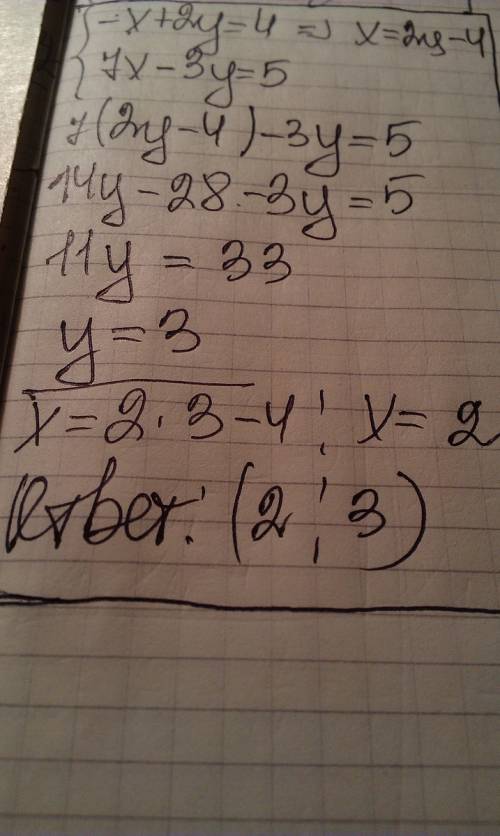 -x+2y=4 => x=2y-4
7x-3y=5
7(2y-4)-3y=5
14y-28-3y=5
11y=33
y=3
x=2·3-4; x=2
Ответ: (2; 3)